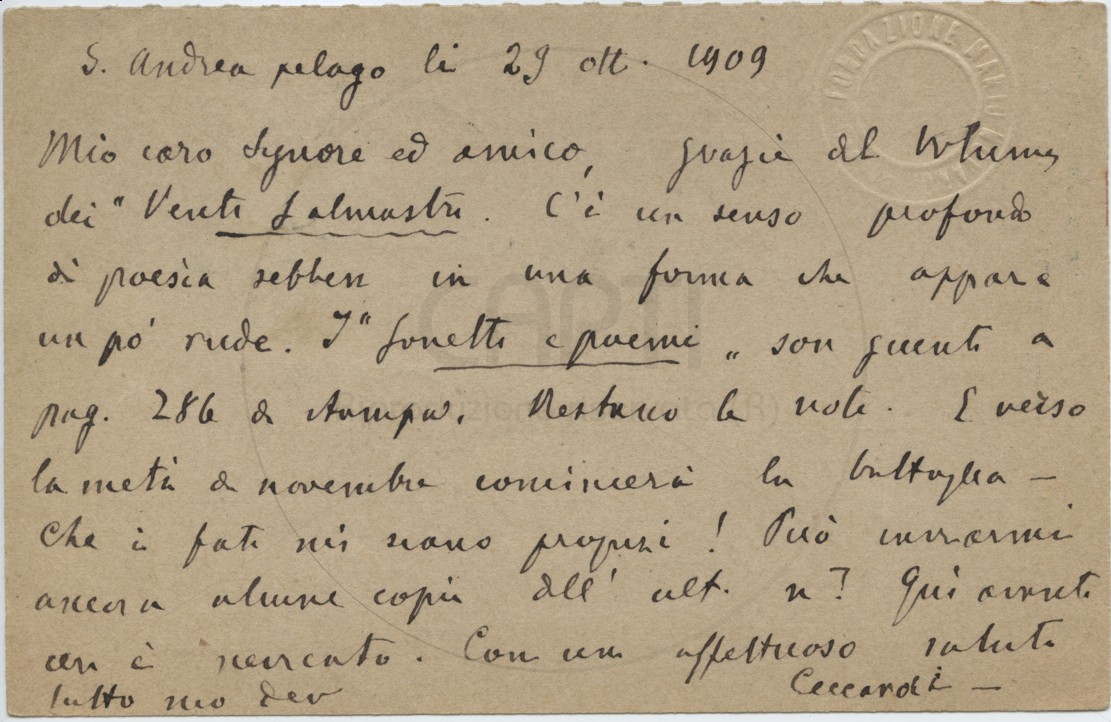 S. Andrea pelago li 29 ott. 1909
Mio caro Signore ed amico, grazie del Volume
dei "Venti Salmastri. C'è un senso profondo
di poesia sebben in una forma che appare
un pò rude. I "Sonetti e poemi „ son giunti a
pag. 286 di stampa. Restano le note. E verso
la metà di novembre comincerà la battaglia —
Che i fati mi siano propizi! Può inviarmi
ancora alcune copie dell' ult. n? Qui
è mercato. Con un affettuoso saluto
tutto suo dev
Ceccardi —
FONDAZIONE MARIO
CARTI